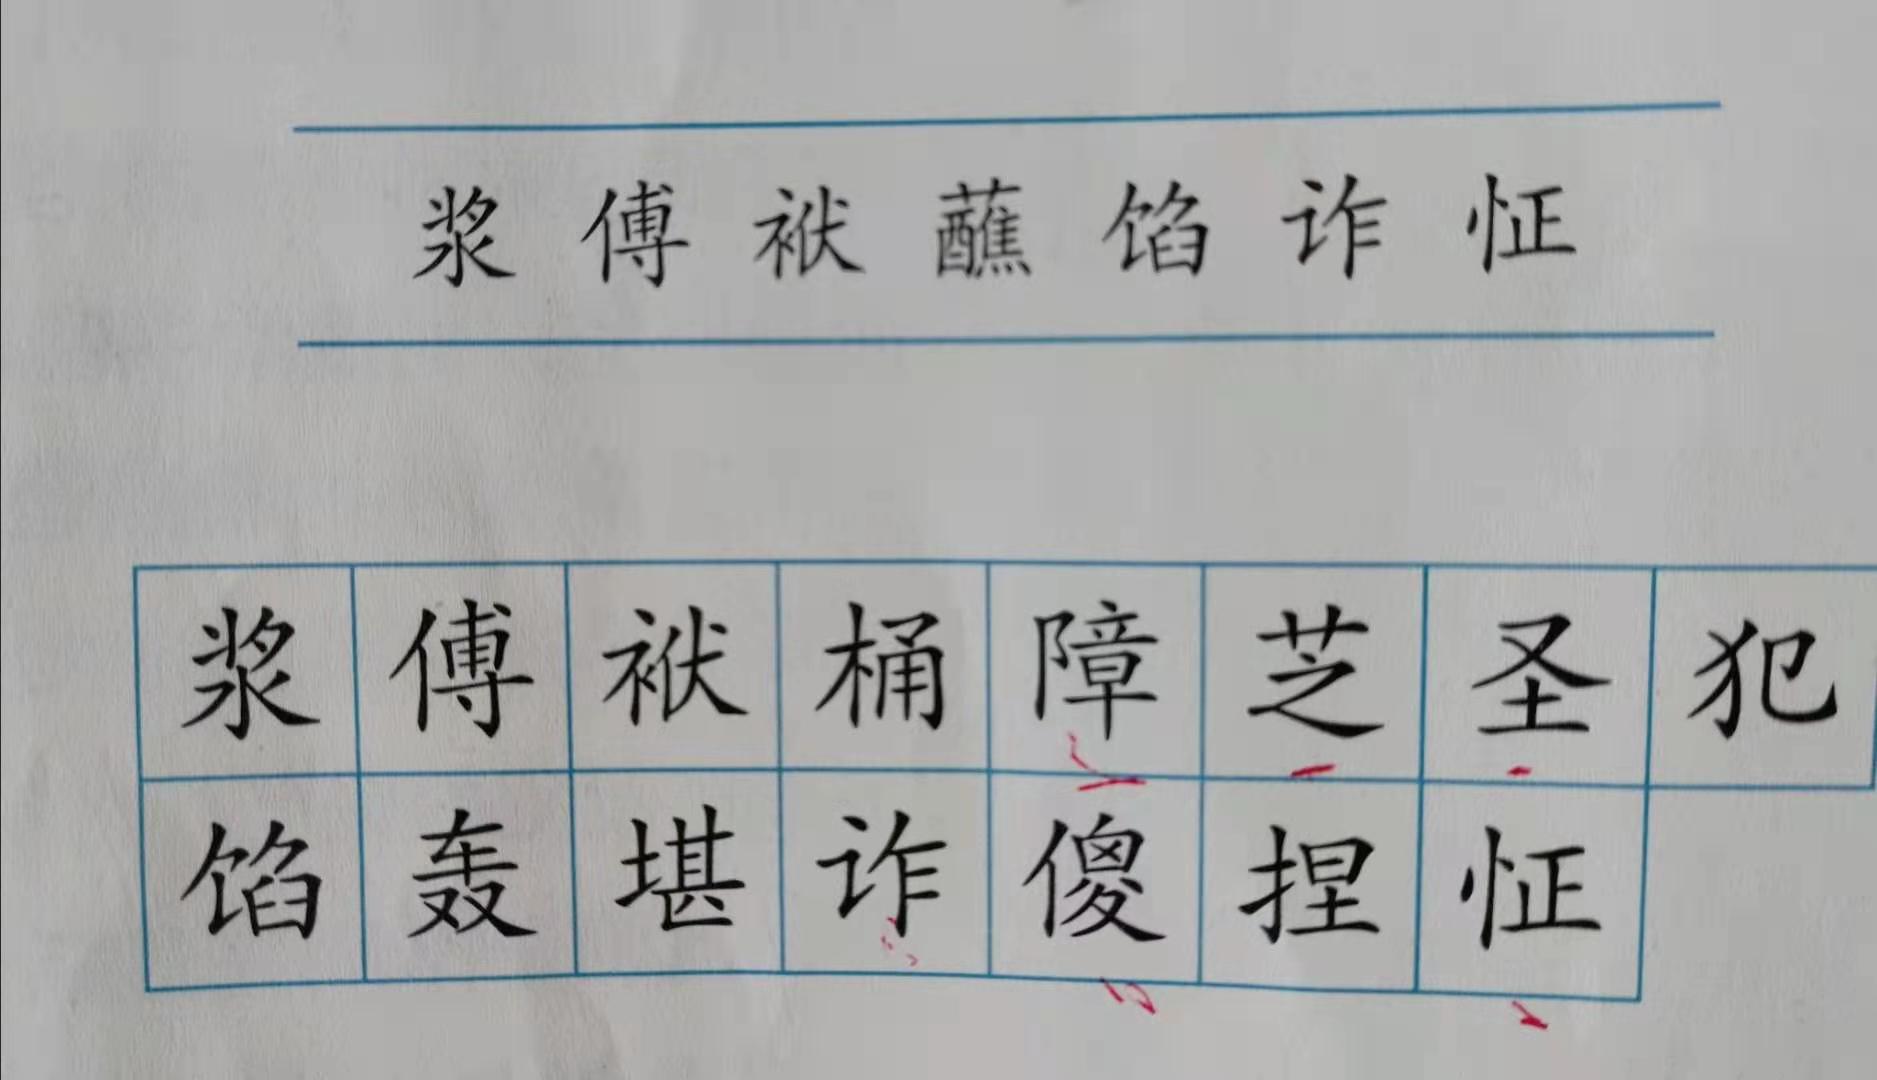 浆 傅 袱 蘸 馅 诈 怔
浆 傅 袱 桶 障 芝 圣 犯
馅 轰 堪 诈 傻 捏 怔